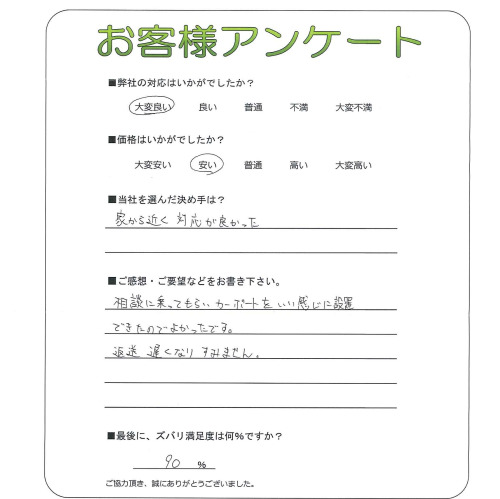 お客様アンケート
■弊社の対応はいかがでしたか？
大変良い 良い 普通 不満 大変不満
■価格はいかがでしたか？
大変安い 安い 普通 高い 大変高い
■当社を選んだ決め手は？
家から近く 対応が良かった
■ご感想・ご要望などをお書き下さい。
相談に乗ってもらい カーポートを いい感じに設置
できたのでよかったです。
返送 遅くなり すみません。
■最後に、ズバリ満足度は何%ですか？
90 %
ご協力頂き、誠にありがとうございました。